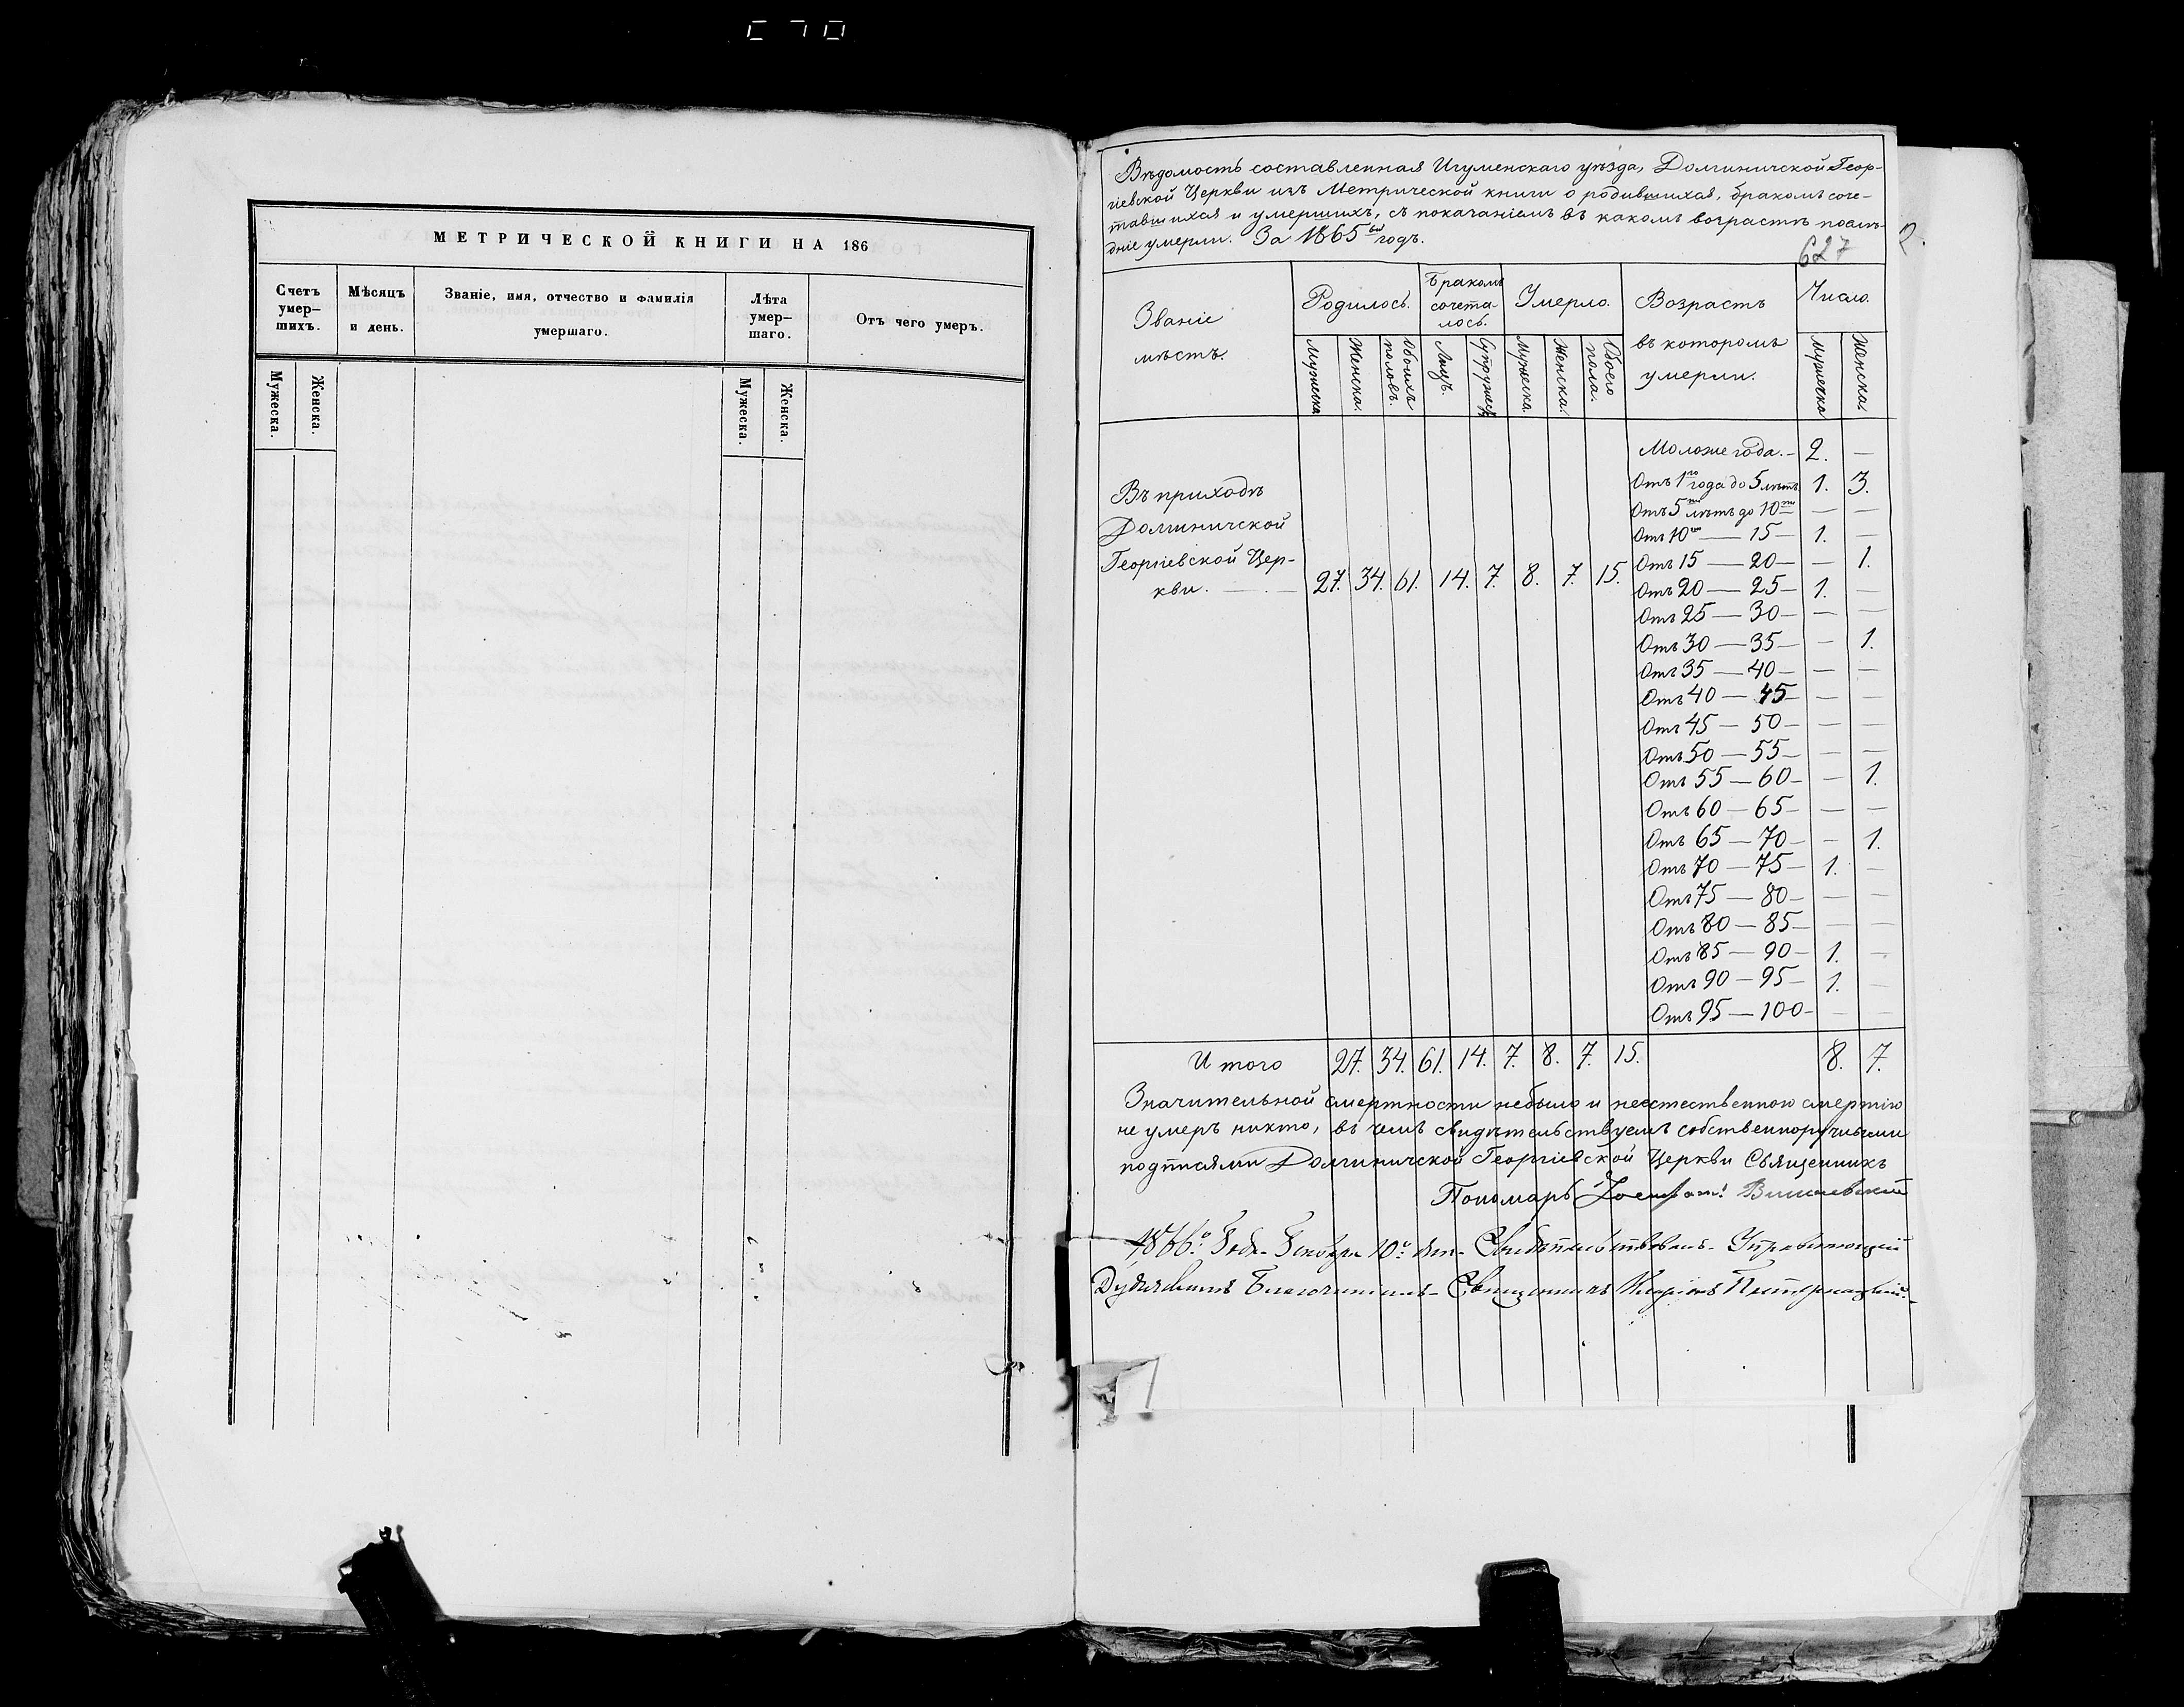 МЕТРИЧЕСКОЙ КНИГИ НА 186
Счетъ умер-шихъ.
Мѣсяцъ и день.
Званіе, имя, отчество и фамилія умершаго.
Лѣта умер-шаго.
Отъ чего умеръ.
Мужеска.
Женска.
Мужеска.
Женска.
Вѣдомость составленная Игуменскаго уѣзда, Долгиничской Геор-
гіевской Церкви изъ Метрической книги о родившихся, бракомъ соче-
тавшихся и умершихъ, съ показаніемъ въ какомъ возрастѣ послѣ-
дніе умерли. За 1865ый годъ.
627
Званіе мѣстъ.
Родилось.
Бракомъ сочета-лось.
Умерло.
Возрастъ въ которомъ умерли.
Число.
Мужеска
Женска.
Обоихъ половъ.
Лицъ.
Супружес.
Мужеска.
Женска.
Обоего пола.
Мужеска
Женска.
Моложе года. – 2. —
Отъ 1го года до 5 лѣтъ. 1. 3.
Отъ 5ти лѣтъ до 10ти — —
Отъ 10ти — 15 – 1. —
Отъ 15 — 20 – — 1.
Отъ 20 — 25 – 1. —
Отъ 25 — 30 – — —
Отъ 30 — 35 – — 1.
Отъ 35 — 40 – — —
Отъ 40 — 45 – — —
Отъ 45 — 50 – — —
Отъ 50 — 55 – — —
Отъ 55 — 60 – — 1.
Отъ 60 — 65 – — —
Отъ 65 — 70 – — 1.
Отъ 70 — 75 – 1. —
Отъ 75 — 80 – — —
Отъ 80 — 85 – — —
Отъ 85 — 90 – 1. —
Отъ 90 — 95 – 1. —
Отъ 95 — 100 – — —
Въ приходѣ
Долгиничской
Георгіевской Цер-
кви. — . — 27. 34. 61. 14. 7. 8. 7. 15.
Итого 27. 34. 61. 14. 7. 8. 7. 15. 8. 7.
Значительной смертности небыло и неестественною смертію
не умеръ никто, въ чемъ свидѣтельствуемъ собственноручными
подписями Долгиничской Георгіевской Церкви Священникъ
Пономарь
1866о года 10о дня Свидѣтельствовалъ Управляющій
Благочиніемъ Священникъ